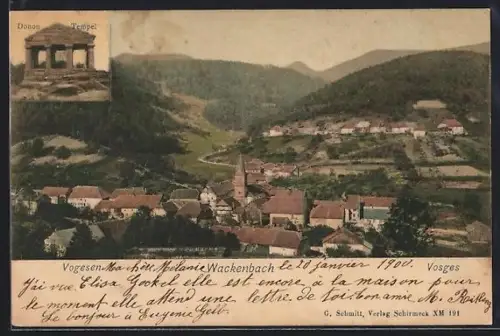 Donon Tempel
Vogesen Ma chère Mélanie Wackenbach le 20 janvier 1900. Vosges
J'ai vue Elisa Gockel elle est encore a la maison pour
le moment elle attend une lettre de
Le bonjour à Eugenie Geib.
G. Schmitt, Verlag Schirmeck XM 191